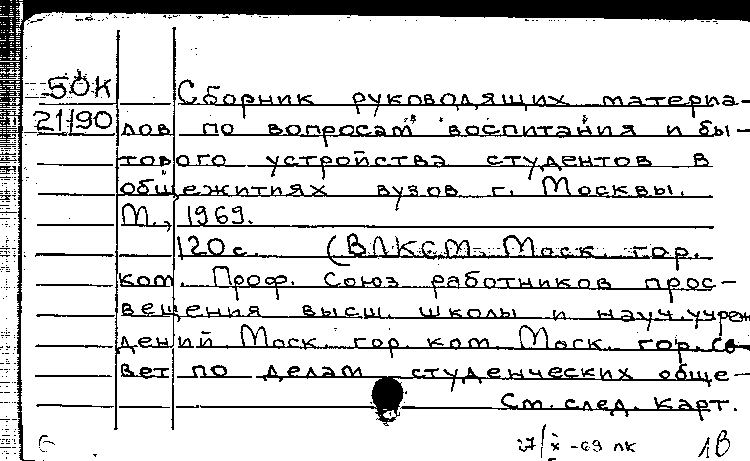 50К Сборник руководящих материа-
21190 лов по вопросам воспитания и бы-
тового устройства студентов в
общежитиях вузов г. Москвы.
М., 1969.
120 с. (ВЛКСМ. Моск. гор.
ком. Проф. Союз работников прос-
вещения высш. школы и науч. учреж
дений Моск. гор. ком. Моск. гор. со-
вет по делам студенческих обще-
См. след. карт.
27/X-69 лк 1В